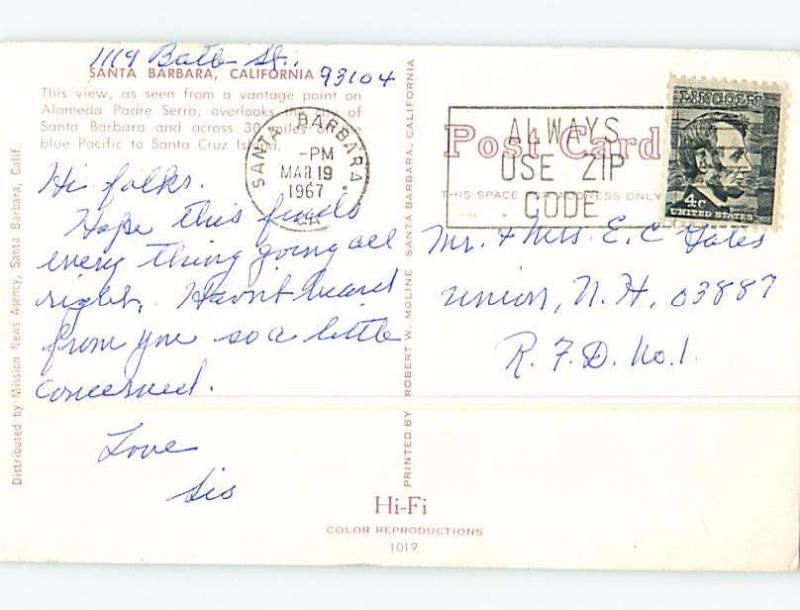 1119 Bath St.,
SANTA BARBARA, CALIFORNIA 93104
This view, as seen from a vantage point on
Alameda Padre Serra, overlooks the of
Santa Barbara and across 30 miles of the
blue Pacific to Santa Cruz Island.
Hi folks.
Hope this finds
every thing going all
right. Havn't heard
from you so a little
concerned.
Love
Sis
Distributed by Mission News Agency, Santa Barbara, Calif.
PRINTED BY ROBERT W. MOLINE SANTA BARBARA, CALIFORNIA
SANTA BARBARA
-PM
MAR 19
1967
CA
ALWAYS
USE ZIP
CODE
Post Card
THIS SPACE ADDRESS ONLY
LINCOLN
4c
UNITED STATES
Mr. & Mrs. E. C Gates
Union, N. H. 03887
R. F. D. No. 1.
Hi-Fi
COLOR REPRODUCTIONS
1019